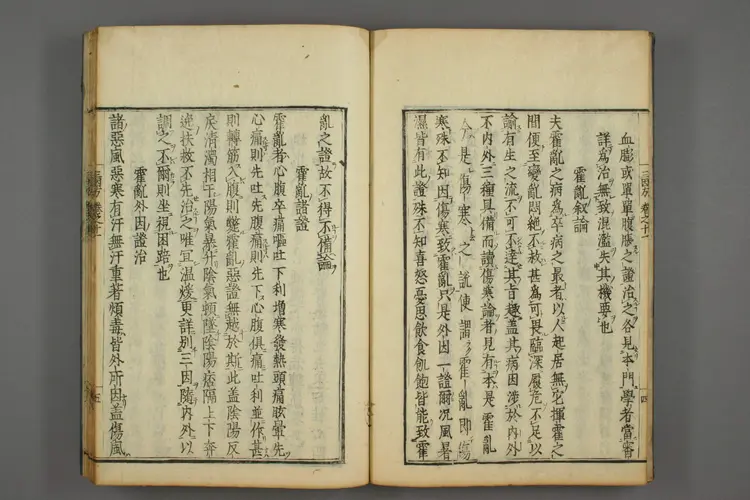 血膨或單單腹脹之證治之各見本門學者當審
詳爲治無致混濫失其機要也
霍亂叙論
夫霍亂之病爲卒病之最者以人起居無它揮霍之
間便至變亂悶絶不救甚爲可畏臨深履危不足以
諭有生之流不可不達其旨趣蓋其病因涉於内外
不内外三種具備而讀傷寒論者見有本是霍亂
今是傷寒之說便謂霍亂即傷
寒殊不知因傷寒致霍亂只是外因一證爾况風暑
濕皆有此證殊不知喜怒憂思飲食飢飽皆能致霍
亂之證故不得不備論
霍亂諸證
霍亂者心腹卒痛嘔吐下利增寒發熱頭痛眩暈先
心痛則先吐先腹痛則先下心腹俱痛吐利並作甚
則轉筋入腹則斃霍亂惡證無越於斯此蓋陰陽反
戾清濁相干陽氣暴升陰氣頓墜陰陽痞隔上下奔
逸扶救不先治之唯宜溫煖更詳別三因隨内外以
調之不爾則坐視困踣也
霍亂外因證治
諸惡風惡寒有汗無汗重著煩毒皆外所因蓋傷風
三因方 卷之十一
四
五